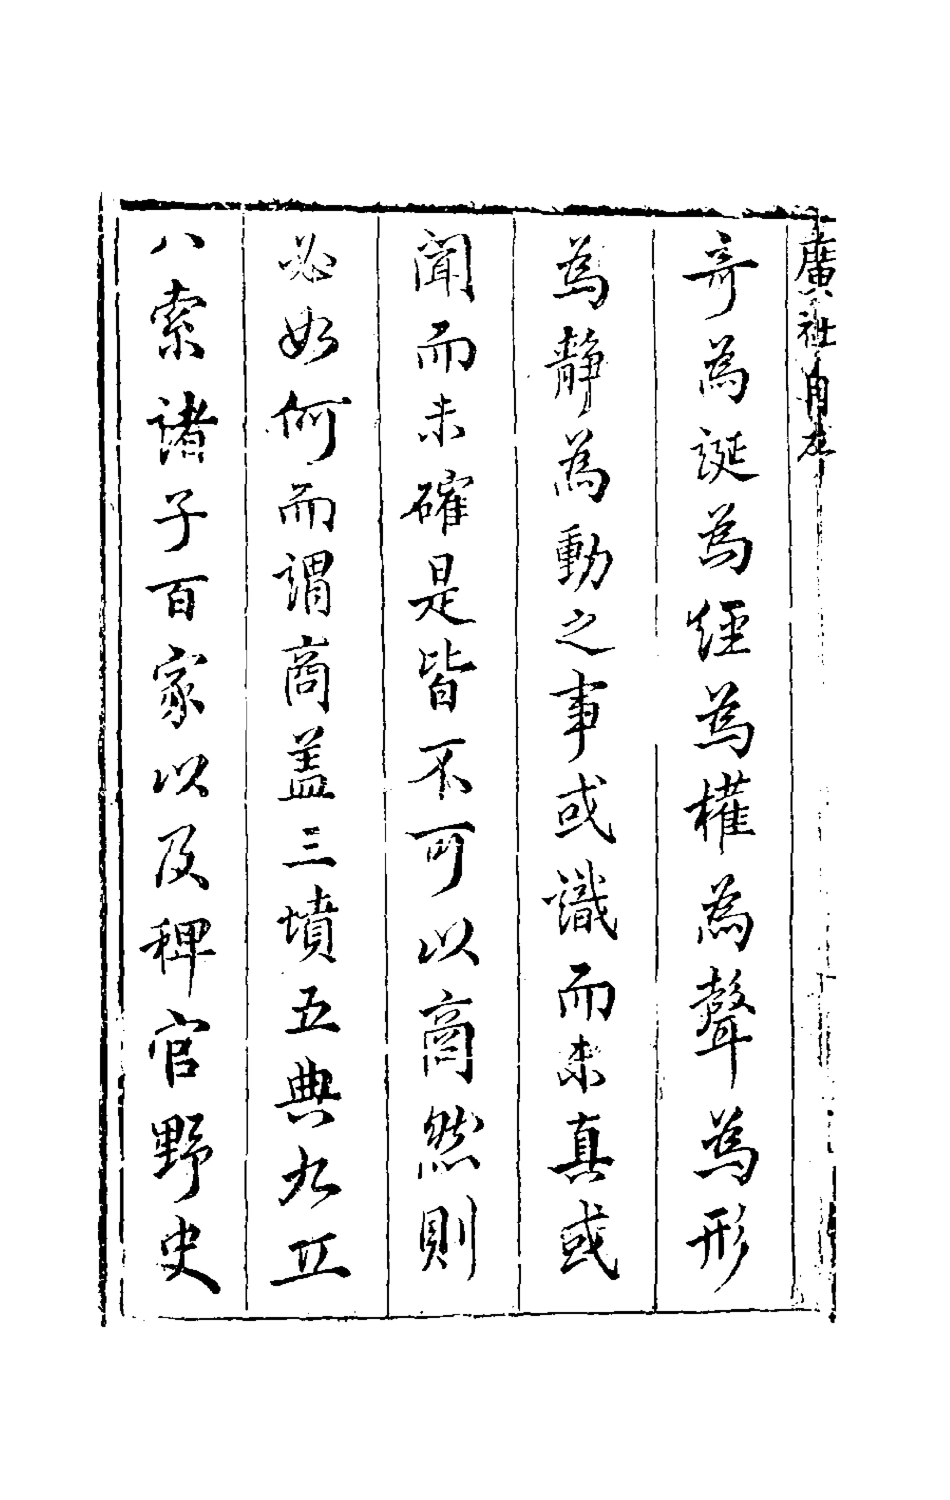 廣社自敘
奇為誕為經為權為聲為形
為靜為動之事或識而未真或
聞而未確是皆不可以商然則
必如何而謂商盖三墳五典九丘
八索諸子百家以及稗官野史